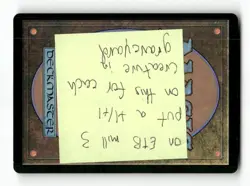 on ETB mill 3
put a +1/+1
on this for each
creature in
graveyard
DECKMASTER